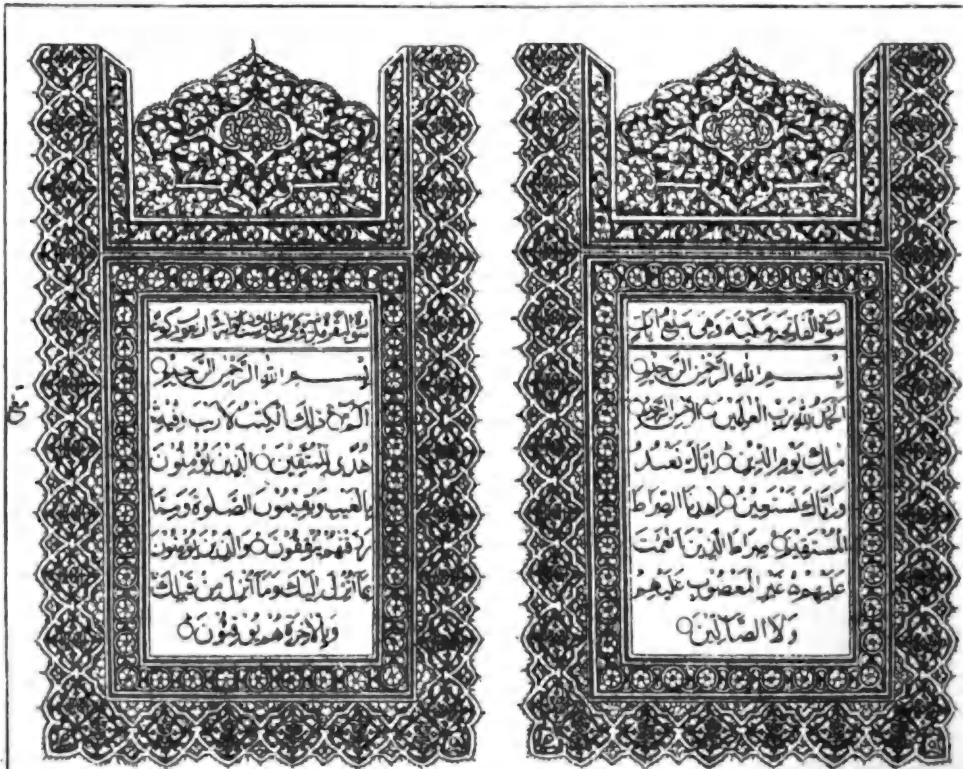 سورة الفاتحة مكية وهى سبع ايات
بِسْمِ اللهِ الرَّحْمٰنِ الرَّحِيْمِ
اَلْحَمْدُ لِلّٰهِ رَبِّ الْعٰلَمِيْنَ ○ الرَّحْمٰنِ الرَّحِيْمِ ○
مٰلِكِ يَوْمِ الدِّيْنِ ○ اِيَّاكَ نَعْبُدُ
وَاِيَّاكَ نَسْتَعِيْنُ ○ اِهْدِنَا الصِّرَاطَ
الْمُسْتَقِيْمَ ○ صِرَاطَ الَّذِيْنَ اَنْعَمْتَ
عَلَيْهِمْ ○ غَيْرِ الْمَغْضُوْبِ عَلَيْهِمْ
وَلَا الضَّآلِّيْنَ ○
سورة البقرة
بِسْمِ اللهِ الرَّحْمٰنِ الرَّحِيْمِ ○
الٓمّٓ ○ ذٰلِكَ الْكِتٰبُ لَا رَيْبَ فِيْهِ
هُدًى لِّلْمُتَّقِيْنَ ○ الَّذِيْنَ يُؤْمِنُوْنَ
بِالْغَيْبِ وَيُقِيْمُوْنَ الصَّلٰوةَ وَمِمَّا
رَزَقْنٰهُمْ يُنْفِقُوْنَ ○ وَالَّذِيْنَ يُؤْمِنُوْنَ
بِمَآ اُنْزِلَ اِلَيْكَ وَمَآ اُنْزِلَ مِنْ قَبْلِكَ
وَبِالْاٰخِرَةِ هُمْ يُوْقِنُوْنَ ○